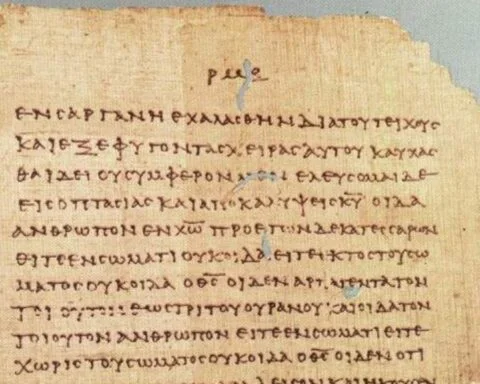 ΕΝ ϹΑΡΓΑΝΗ ΕΧΑΛΑϹΘΗΝ ΔΙΑ ΤΟΥ ΤΕΙΧΟΥϹ
ΚΑΙ ΕΞΕΦΥΓΟΝ ΤΑϹ ΧΕΙΡΑϹ ΑΥΤΟΥ ΚΑΥΧΑϹ
ΘΑΙ ΔΕΙ ΟΥ ϹΥΜΦΕΡΟΝ ΜΕΝ ΕΛΕΥϹΟΜΑΙ ΔΕ
ΕΙϹ ΟΠΤΑϹΙΑϹ ΚΑΙ ΑΠΟΚΑΛΥΨΕΙϹ Κ̅Υ̅ ΟΙΔΑ
ΑΝΘΡΩΠΟΝ ΕΝ Χ̅Ω̅ ΠΡΟ ΕΤΩΝ ΔΕΚΑΤΕϹϹΑΡΩΝ
ΕΙΤΕ ΕΝ ϹΩΜΑΤΙ ΟΥΚ ΟΙΔΑ ΕΙΤΕ ΕΚΤΟϹ ΤΟΥ ϹΩ
ΜΑΤΟϹ ΟΥΚ ΟΙΔΑ Ο Θ̅Ϲ̅ ΟΙΔΕΝ ΑΡΠΑΓΕΝΤΑ ΤΟΝ
ΤΟΙΟΥΤΟΝ ΕΩϹ ΤΡΙΤΟΥ ΟΥΡΑΝΟΥ ΚΑΙ ΟΙΔΑ ΤΟΝ
ΤΟΙΟΥΤΟΝ ΑΝΘΡΩΠΟΝ ΕΙΤΕ ΕΝ ϹΩΜΑΤΙ ΕΙΤΕ
ΧΩΡΙϹ ΤΟΥ ϹΩΜΑΤΟϹ ΟΥΚ ΟΙΔΑ Ο Θ̅Ϲ̅ ΟΙΔΕΝ ΟΤΙ